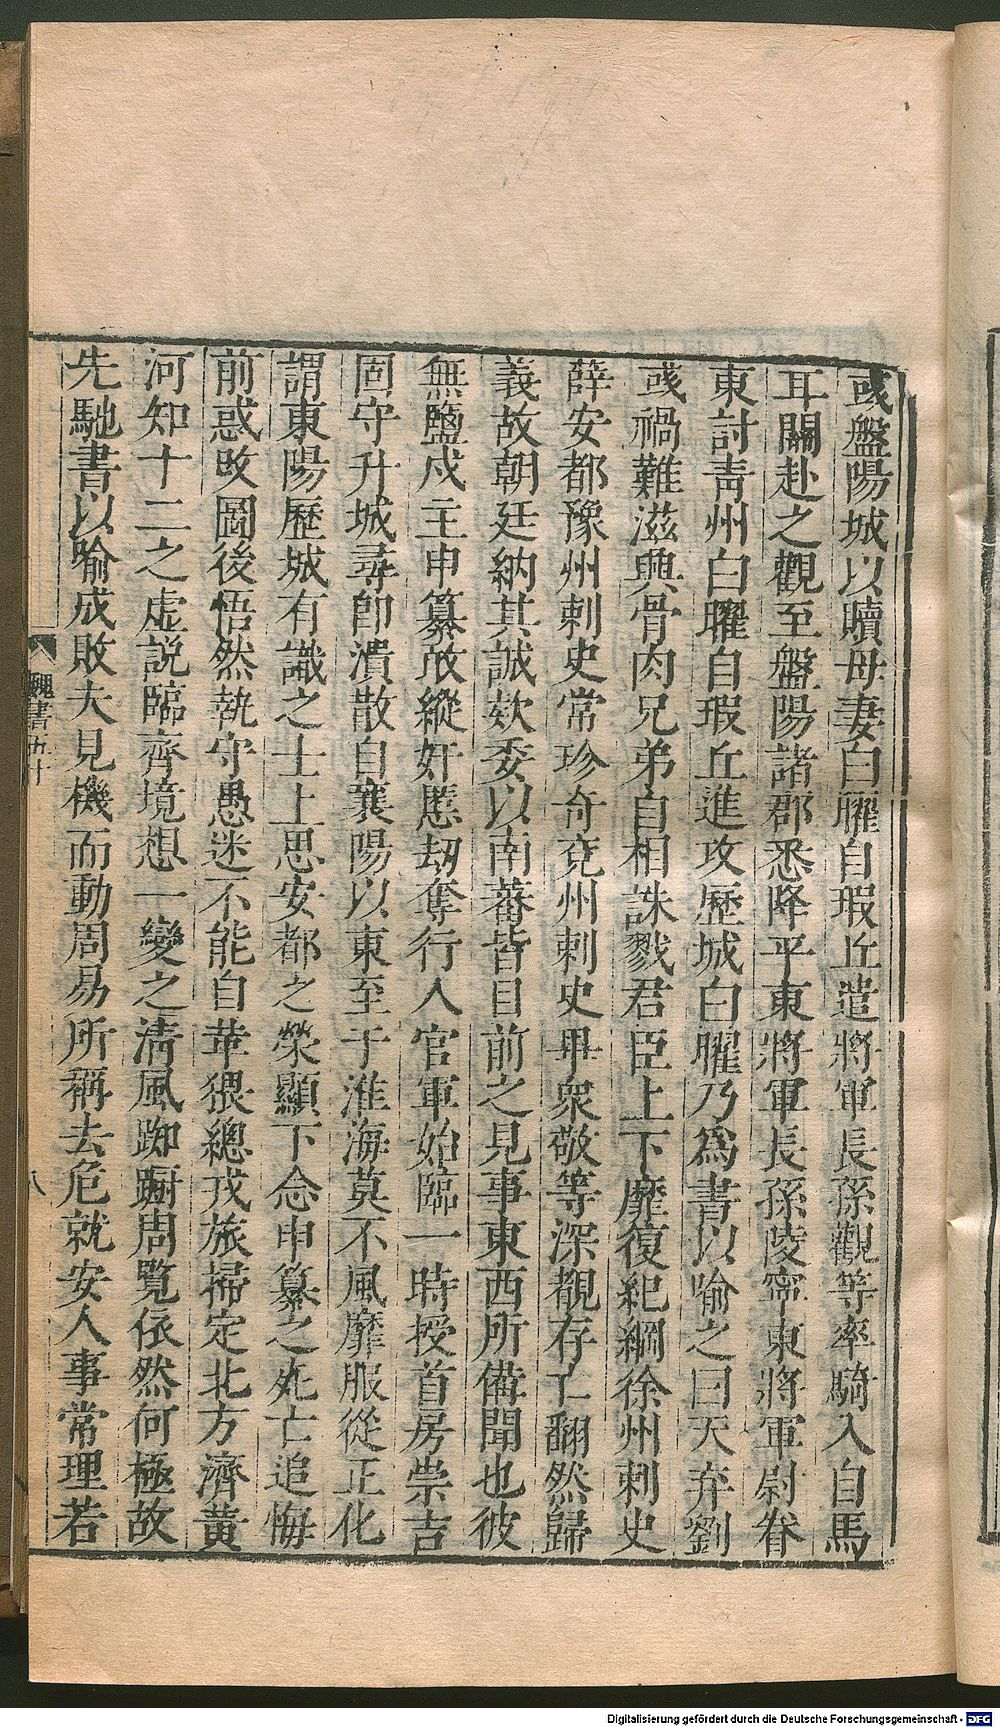 或盤陽城以贖母妻白曜自瑕丘遣將軍長孫觀等率騎入自馬
耳關赴之觀至盤陽諸郡悉降平東將軍長孫陵寧東將軍尉眷
東討靑州白曜自瑕丘進攻歷城白曜乃爲書以喻之曰天弃劉
彧禍難滋興骨肉兄弟自相誅戮君臣上下靡復紀綱徐州刺史
薛安都豫州刺史常珍奇兗州刺史畢衆敬等深覩存亡翻然歸
義故朝廷納其誠欵委以南蕃皆目前之見事東西所備聞也彼
無鹽戍主申纂敢縱奸慝劫奪行人官軍始臨一時授首房崇吉
固守升城尋卽潰散自襄陽以東至于淮海莫不風靡服從正化
謂東陽歷城有識之士上思安都之榮顯下念申纂之死亡追悔
前惑攺圖後悟然執守愚迷不能自革猥總戎旅掃定北方濟黃
河知十二之虛說臨齊境想一變之淸風踟蹰周覧依然何極故
先馳書以喻成敗夫見機而動周易所稱去危就安人事常理若
魏書五十
八
Digitalisierung gefördert durch die Deutsche Forschungsgemeinschaft - DFG